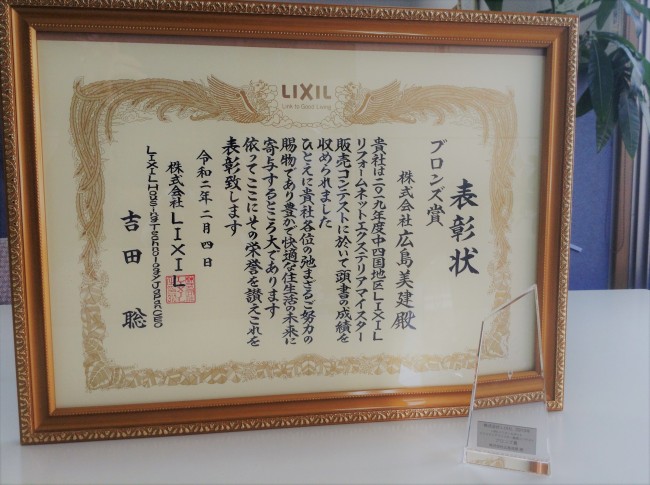 LIXIL
Link to Good Living
表彰状
ブロンズ賞
株式会社広島美建殿
貴社は二〇一九年度中四国地区LIXIL
リフォームネットエクステリアマイスター
販売コンテストに於いて頭書の成績を
収められました
ひとえに貴社各位の弛まざるご努力の
賜物であり豊かで快適な住生活の未来に
寄与するところ大であります
依ってここにその栄誉を讃えこれを
表彰致します
令和二年二月四日
株式会社LIXIL
LIXIL Housing Technology Japan CEO
吉田 聡